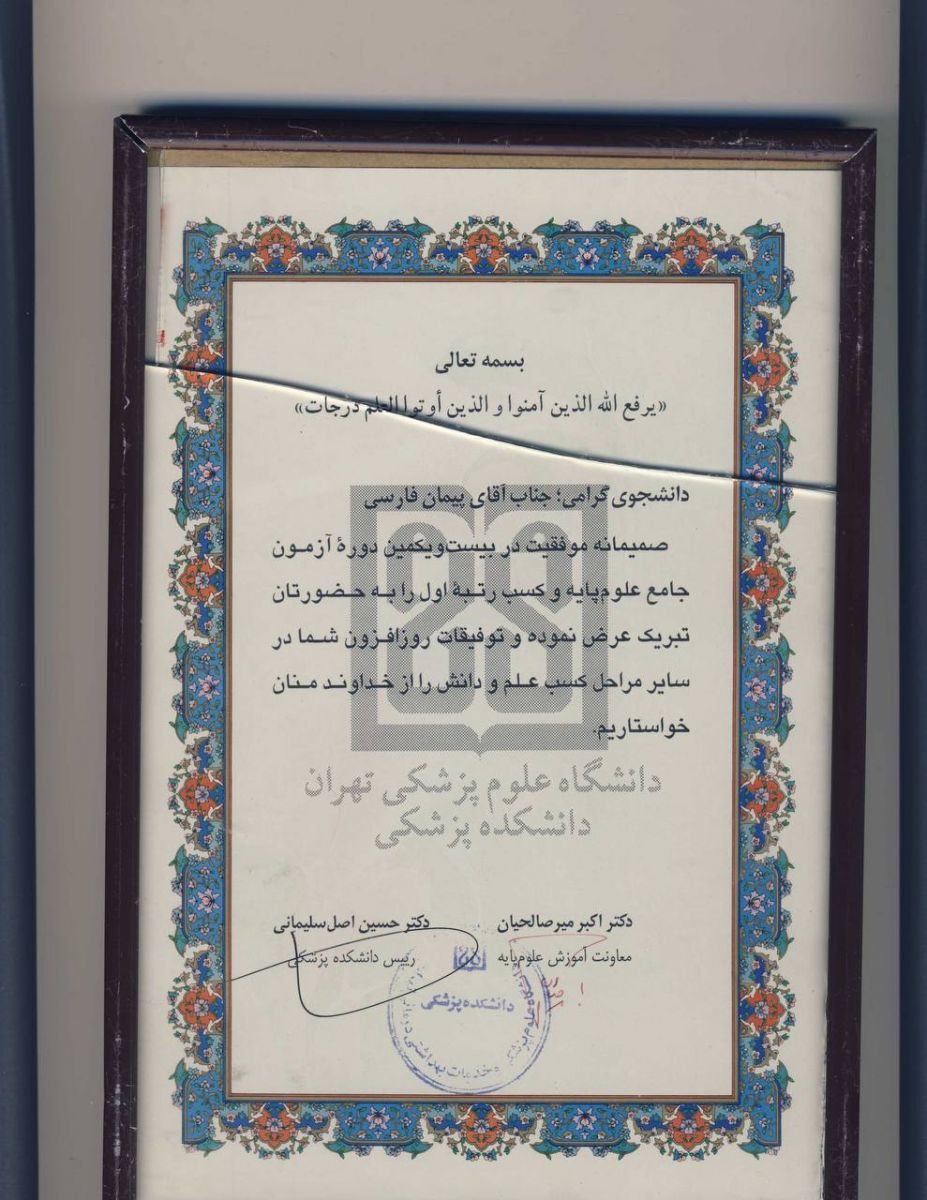 بسمه تعالی
«یرفع الله الذین آمنوا و الذین أوتوا العلم درجات»
دانشجوی گرامی؛ جناب آقای پیمان فارسی
صمیمانه موفقیت در بیست‌ویکمین دورهٔ آزمون
جامع علوم‌پایه و کسب رتبهٔ اول را به حضورتان
تبریک عرض نموده و توفیقات روزافزون شما در
سایر مراحل کسب علم و دانش را از خداوند منان
خواستاریم.
دانشگاه علوم پزشکی تهران
دانشکده پزشکی
دکتر اکبر میرصالحیان
معاونت آموزش علوم‌پایه
دکتر حسین اصل‌سلیمانی
رییس دانشکده پزشکی
دانشکده پزشکی
علوم پزشکی و خدمات بهداشتی درمانی